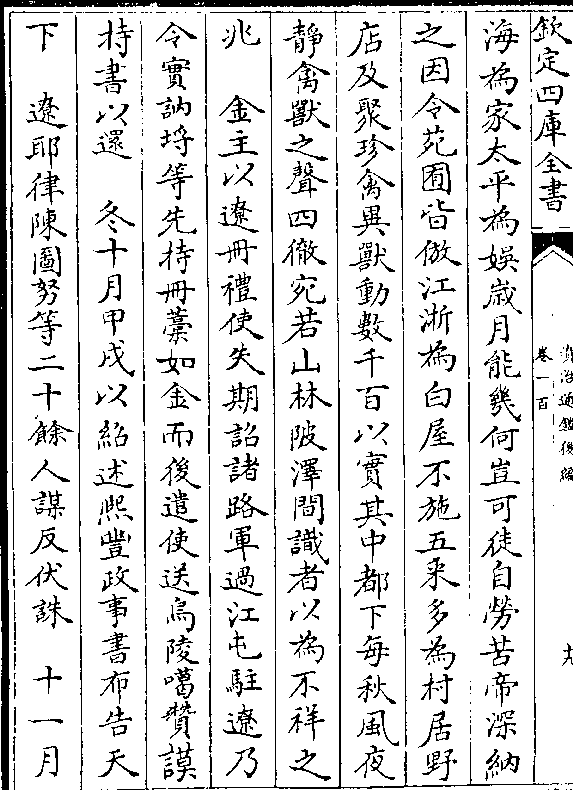 欽定四庫全書
資治通鑑後編
卷一百
十九
海為家太平為娛歲月能幾何豈可徒自勞苦帝深納
之因令苑囿皆倣江浙為白屋不施五采多為村居野
店及聚珍禽異獸動數千百以實其中都下每秋風夜
靜禽獸之聲四徹宛若山林陂澤間識者以為不祥之
兆　金主以遼冊禮使失期詔諸路軍過江屯駐遼乃
令實訥埒等先持冊藁如金而後遣使送烏陵噶贊謨
持書以還　冬十月甲戌以紹述熙豐政事書布告天
下　遼耶律陳圖努等二十餘人謀反伏誅　十一月